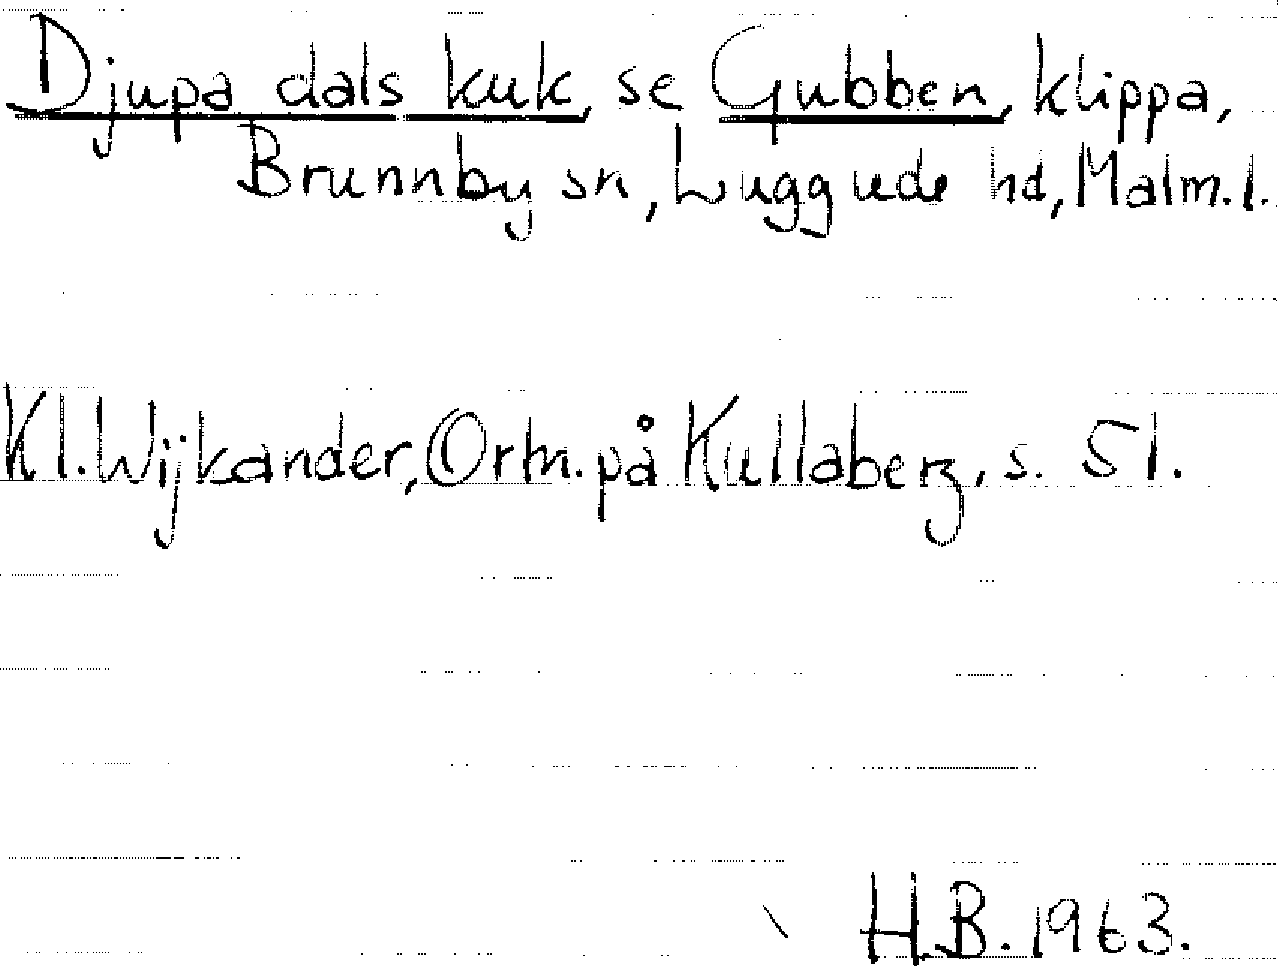 Djupa dals kuk, se Gubben, klippa,
Brunnby sn, Luggude hd, Malm. l.
Kl. Wijkander, Ortn. på Kullaberg, s. 51.
H.B. 1963.